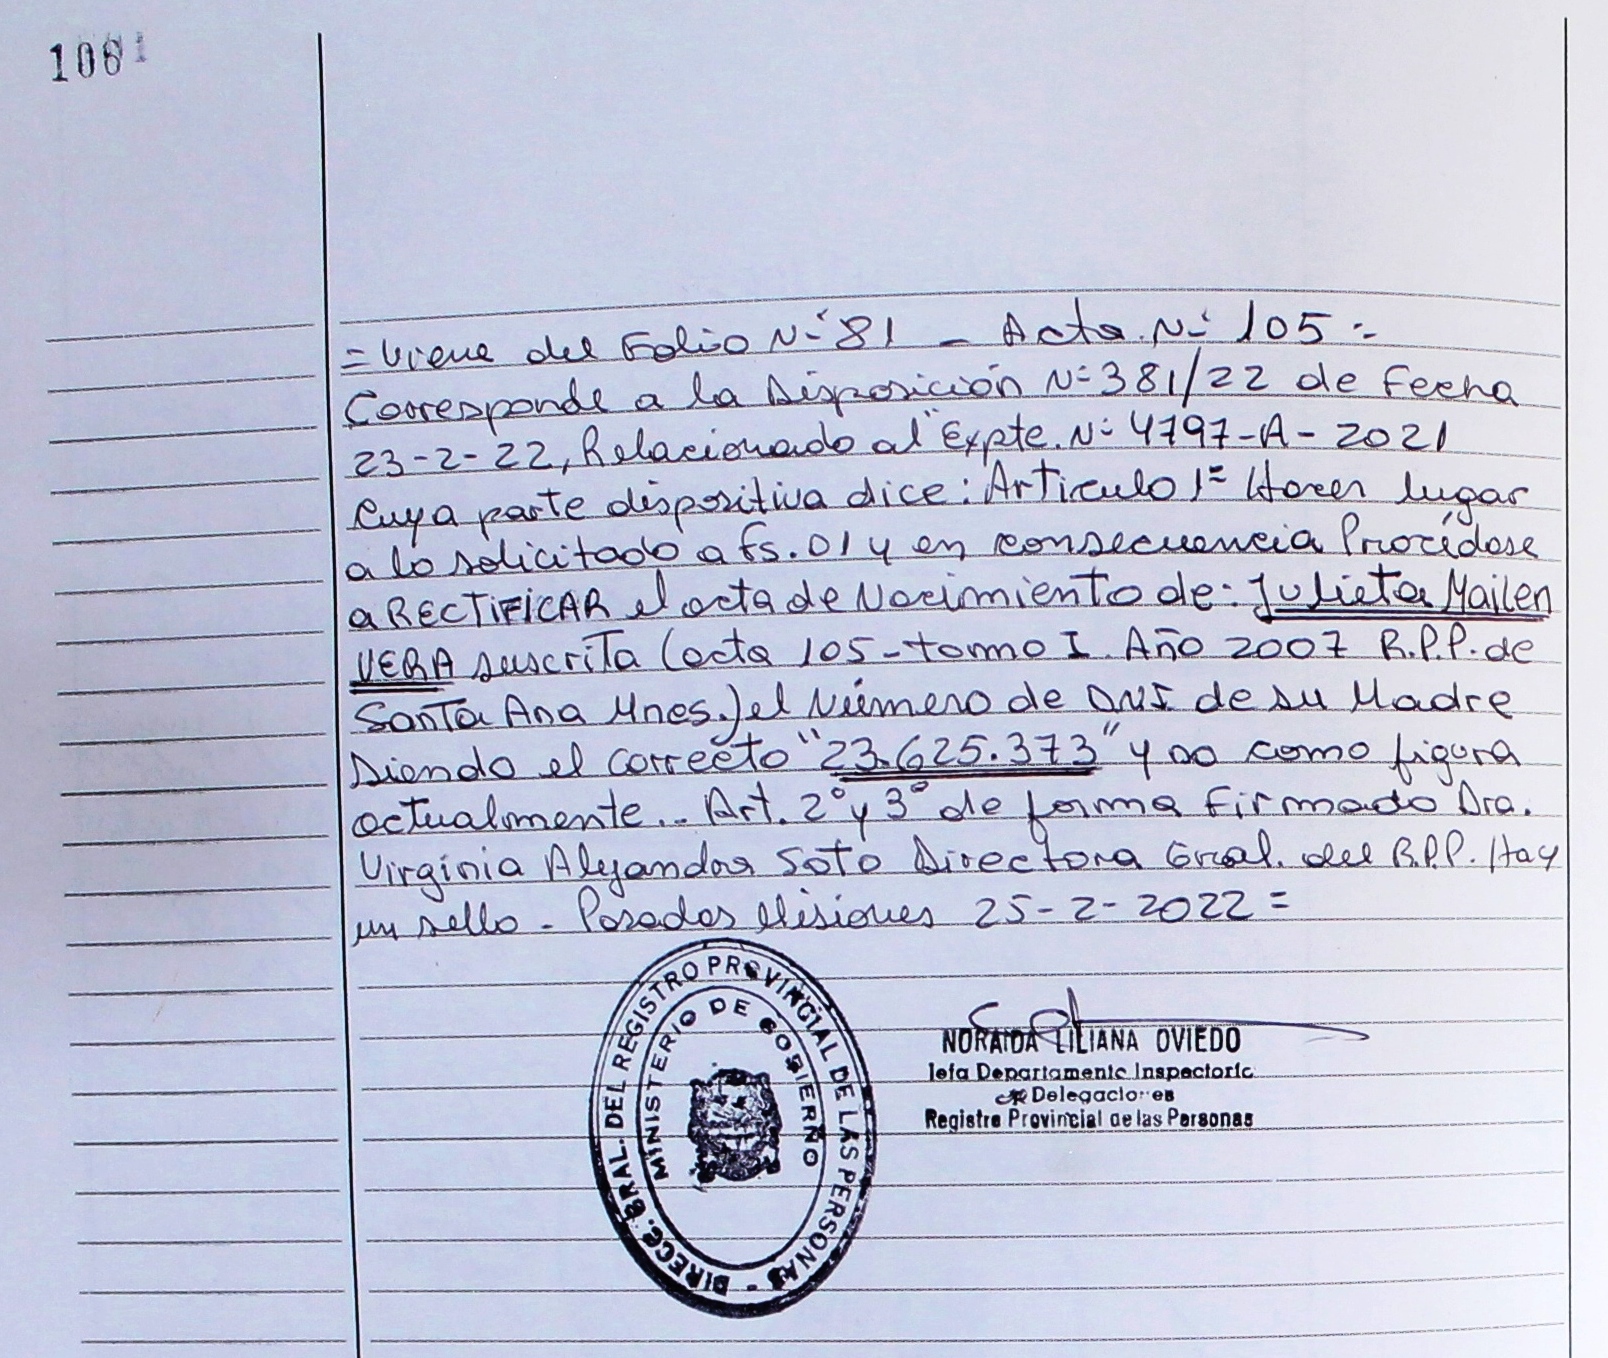 = Viene del Folio N-° 81 - Acta. N-° 105 :-
Corresponde a la Disposición N° 381/22 de Fecha
23-2-22, Relacionado al "Expte. N° 4797-A-2021
Cuya parte dispositiva dice: Articulo 1= Hacer lugar
a lo solicitado a fs. 01 y en consecuencia Procédase
a RECTIFICAR el acta de Nacimiento de: Julieta Mailen
VERA suscrita (acta 105-tomo I. Año 2007 R.P.P. de
Santa Ana Mnes.) el Número de DNI de su Madre
Siendo el correcto "23.625.373" y no como figura
actualmente.. Art. 2° y 3° de forma Firmado Dra.
Virginia Alejandra Soto Directora Gral. del R.P.P. Hay
un sello - Posadas Misiones 25-2-2022 =
DIRECC. GRAL. DEL REGISTRO PROVINCIAL DE LAS PERSONAS -
MINISTERIO DE GOBIERNO
NORAIDA LILIANA OVIEDO
Jefa Departamento Inspectoria
Delegaciones
Registro Provincial de las Personas